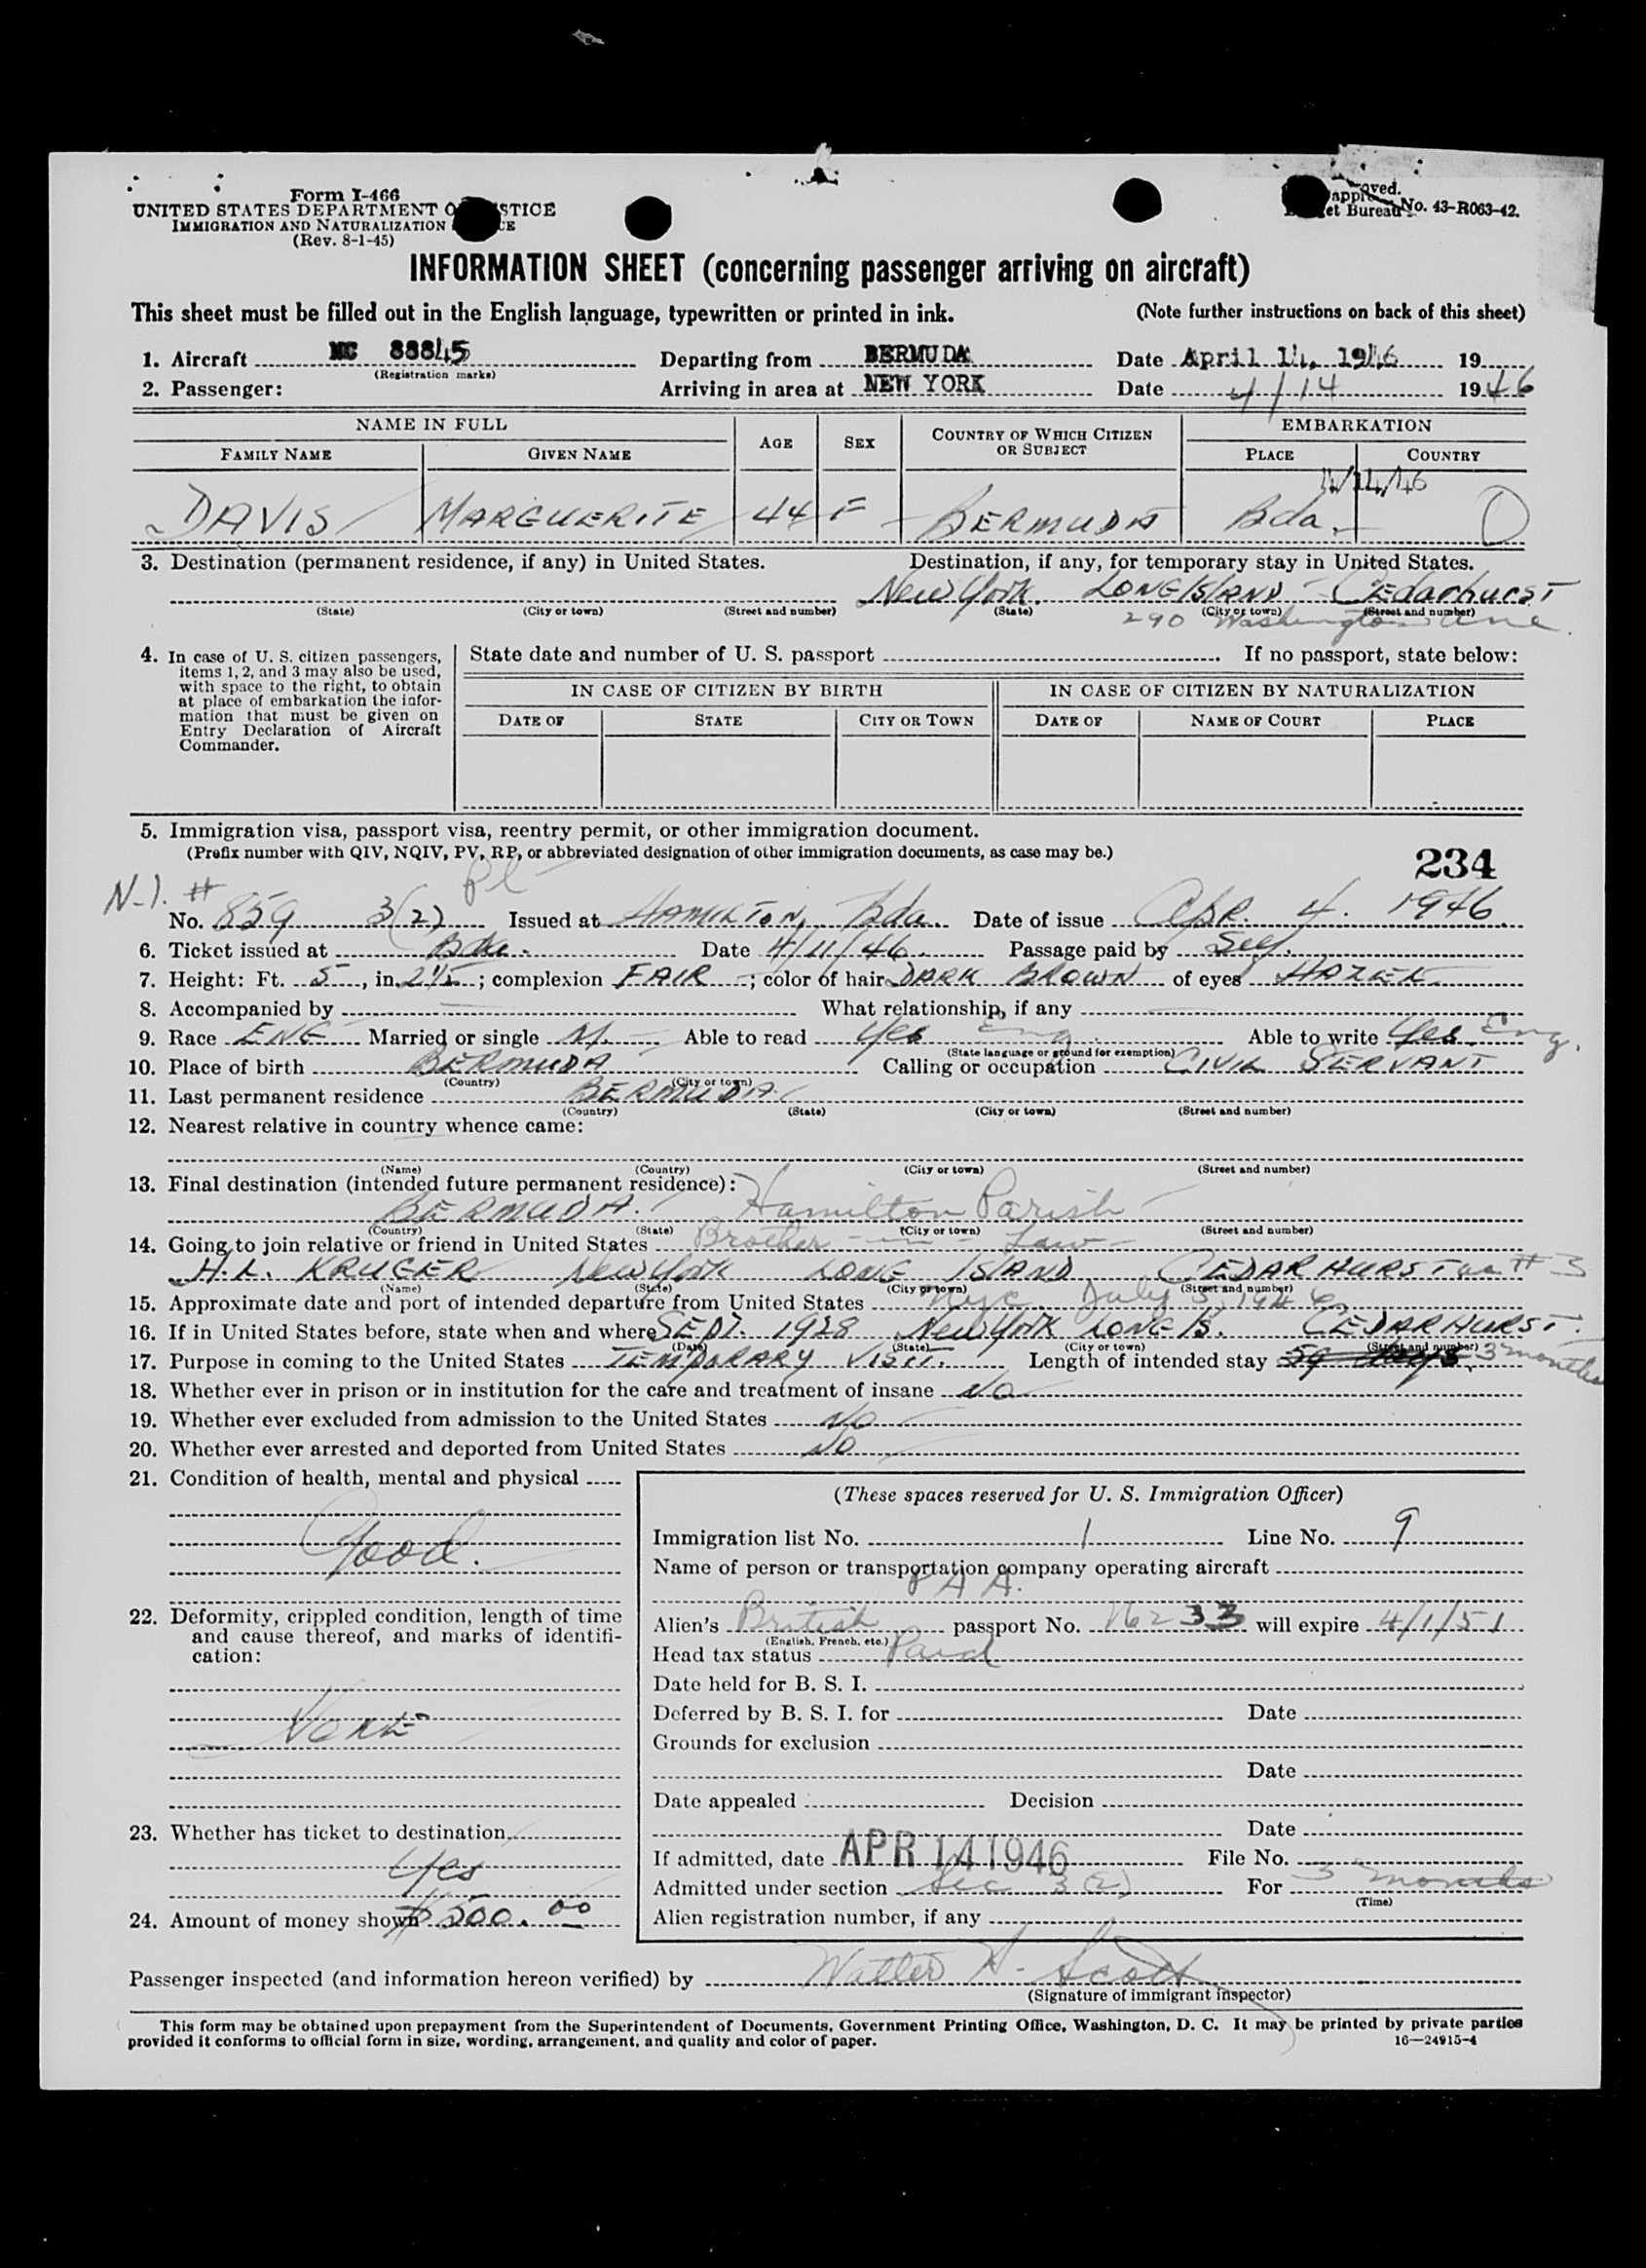 Form I-466
UNITED STATES DEPARTMENT O STICE
IMMIGRATION AND NATURALIZATION CE
(Rev. 8-1-45)
oved.
et Bureau No. 43-R063-42.
INFORMATION SHEET (concerning passenger arriving on aircraft)
This sheet must be filled out in the English language, typewritten or printed in ink. (Note further instructions on back of this sheet)
1. Aircraft NC 88845 Departing from BERMUDA Date April 14, 1946 19
(Registration marks)
2. Passenger: Arriving in area at NEW YORK Date 4/14 1946
NAME IN FULL AGE SEX COUNTRY OF WHICH CITIZEN OR SUBJECT EMBARKATION
FAMILY NAME GIVEN NAME PLACE COUNTRY
4/14/46
DAVIS MARGUERITE 44 F BERMUDA Bda.
3. Destination (permanent residence, if any) in United States. Destination, if any, for temporary stay in United States.
New York. LONG ISLAND - CEdarhursT
(State) (City or town) (Street and number) (State) (City or town) (Street and number)
290 Washington Ave.
4. In case of U. S. citizen passengers, items 1, 2, and 3 may also be used, with space to the right, to obtain at place of embarkation the information that must be given on Entry Declaration of Aircraft Commander.
State date and number of U. S. passport . If no passport, state below:
IN CASE OF CITIZEN BY BIRTH IN CASE OF CITIZEN BY NATURALIZATION
DATE OF STATE CITY OR TOWN DATE OF NAME OF COURT PLACE
5. Immigration visa, passport visa, reentry permit, or other immigration document.
(Prefix number with QIV, NQIV, PV, RP, or abbreviated designation of other immigration documents, as case may be.)
234
N-I. #
No. 859 3(2) Issued at HAMILTON, Bda. Date of issue Apr. 4. 1946
6. Ticket issued at Bda. Date 4/11/46. Passage paid by Self.
7. Height: Ft. 5, in. 2 1/2; complexion FAIR; color of hair DARK BROWN of eyes HAZEL
8. Accompanied by What relationship, if any
9. Race ENG Married or single M. Able to read Yes Eng. Able to write Yes. Eng.
(State language or ground for exemption)
10. Place of birth BERMUDA Calling or occupation CIVIL SERVANT
(Country) (City or town)
11. Last permanent residence BERMUDA
(Country) (State) (City or town) (Street and number)
12. Nearest relative in country whence came:
(Name) (Country) (City or town) (Street and number)
13. Final destination (intended future permanent residence):
BERMUDA. Hamilton Parish
(Country) (State) (City or town) (Street and number)
14. Going to join relative or friend in United States Brother - in - Law
H.L. KRUGER New York LONG ISLAND CEDARHURST as # 3
(Name) (State) (City or town) (Street and number)
15. Approximate date and port of intended departure from United States NYC July 5, 1946
16. If in United States before, state when and where SEPT. 1928 New York LONG IS. CEDARHURST.
(Date) (State) (City or town) (Street and number)
17. Purpose in coming to the United States TEMPORARY VISIT. Length of intended stay 59 days. 3 months
18. Whether ever in prison or in institution for the care and treatment of insane No
19. Whether ever excluded from admission to the United States No
20. Whether ever arrested and deported from United States No
21. Condition of health, mental and physical
Good.
22. Deformity, crippled condition, length of time and cause thereof, and marks of identification:
NONE
23. Whether has ticket to destination
Yes
24. Amount of money shown $ 500.00
(These spaces reserved for U. S. Immigration Officer)
Immigration list No. 1 Line No. 9
Name of person or transportation company operating aircraft
PAA.
Alien's British passport No. 16233 will expire 4/1/51
(English, French, etc.)
Head tax status Paid
Date held for B. S. I.
Deferred by B. S. I. for Date
Grounds for exclusion
Date
Date appealed Decision
Date
If admitted, date APR 14 1946 File No.
Admitted under section Sec 3(2) For 3 months
(Time)
Alien registration number, if any
Passenger inspected (and information hereon verified) by Walter H. Scott
(Signature of immigrant inspector)
This form may be obtained upon prepayment from the Superintendent of Documents, Government Printing Office, Washington, D. C. It may be printed by private parties
provided it conforms to official form in size, wording, arrangement, and quality and color of paper. 16—24915-4